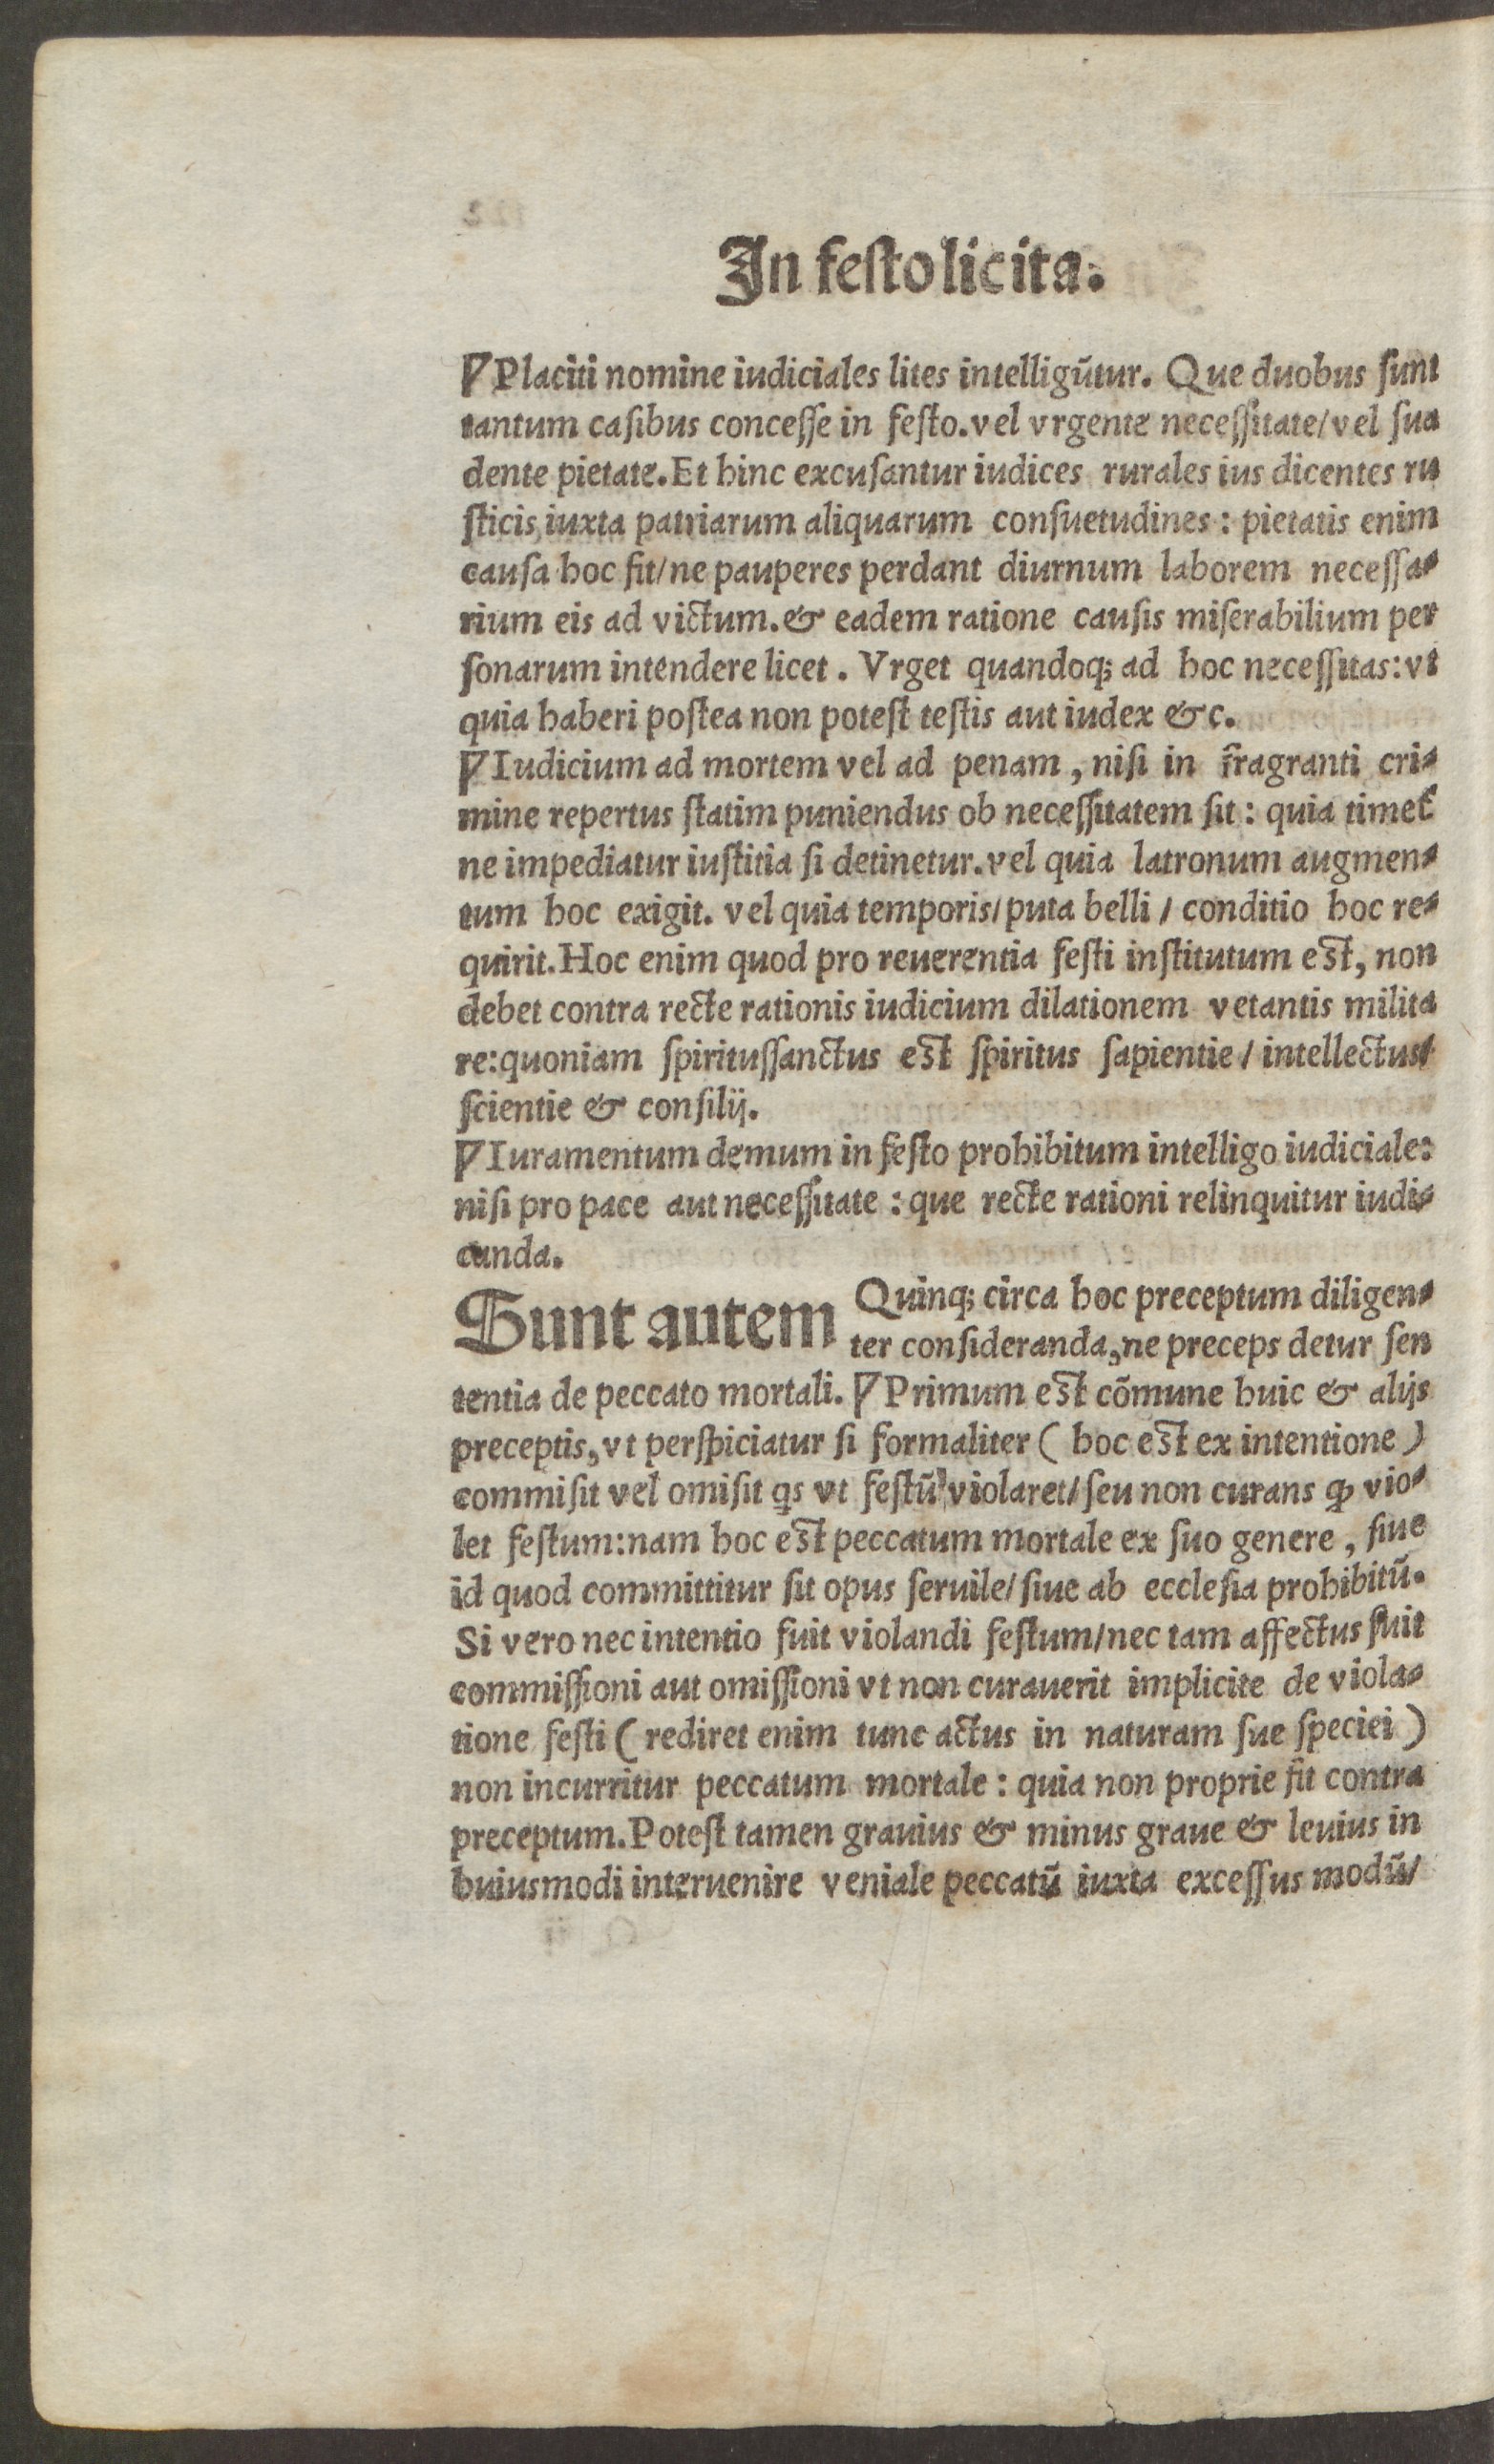 In feſto licita.
¶Placiti nomine iudiciales lites intelligūtur. Que duobus ſunt
tantum caſibus conceſſe in feſto.vel vrgente neceſſitate/vel ſua
dente pietate.Et hinc excuſantur iudices rurales ius dicentes ru
ſticis,iuxta patriarum aliquarum conſuetudines : pietatis enim
cauſa hoc fit/ne pauperes perdant diurnum laborem neceſſa⸗
rium eis ad victum.& eadem ratione cauſis miſerabilium per
ſonarum intendere licet . Vrget quandoq; ad hoc neceſſitas:vt
quia haberi poſtea non poteſt teſtis aut iudex &c.
¶Iudicium ad mortem vel ad penam , niſi in fragranti cri⸗
mine repertus ſtatim puniendus ob neceſſitatem ſit : quia timet᷑
ne impediatur iuſtitia ſi detinetur.vel quia latronum augmen⸗
tum hoc exigit. vel quia temporis/puta belli / conditio hoc re⸗
quirit.Hoc enim quod pro reuerentia feſti inſtitutum eſt, non
debet contra recte rationis iudicium dilationem vetantis milita
re:quoniam ſpirituſſanctus eſt ſpiritus ſapientie / intellectus/
ſcientie & conſilij.
¶Iuramentum demum in feſto prohibitum intelligo iudiciale:
niſi pro pace aut neceſſitate : que recte rationi relinquitur iudi⸗
canda.
Sunt autem Quinq; circa hoc preceptum diligen⸗
ter conſideranda,ne preceps detur ſen
tentia de peccato mortali. ¶Primum eſt cōmune huic & alijs
preceptis,vt perſpiciatur ſi formaliter ( hoc eſt ex intentione )
commiſit vel omiſit qs vt feſtū violaret/ſeu non curans ꝙ vio⸗
let feſtum:nam hoc eſt peccatum mortale ex ſuo genere , ſiue
id quod committitur ſit opus ſeruile/ſiue ab eccleſia prohibitū.
Si vero nec intentio fuit violandi feſtum/nec tam affectus fuit
commiſſioni aut omiſſioni vt non curauerit implicite de viola⸗
tione feſti ( rediret enim tunc actus in naturam ſue ſpeciei )
non incurritur peccatum mortale : quia non proprie fit contra
preceptum.Poteſt tamen grauius & minus graue & leuius in
huiusmodi interuenire veniale peccatū iuxta exceſſus modū/